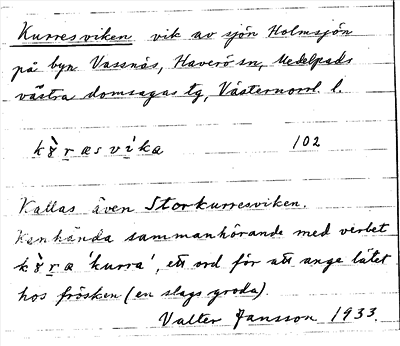 Kurresviken vik av sjön Holmsjön
på byn Vassnäs, Haverö sn, Medelpads
västra domsagas tg, Västernorrl. l.
kɤ̀ræsvi̇̀ka 102
Kallas även Storkurresviken.
Kanhända sammanhörande med verbet
kɤ̀ræ 'kurra', ett ord för att ange lätet
hos frösken (en slags groda).
Valter Jansson 1933.